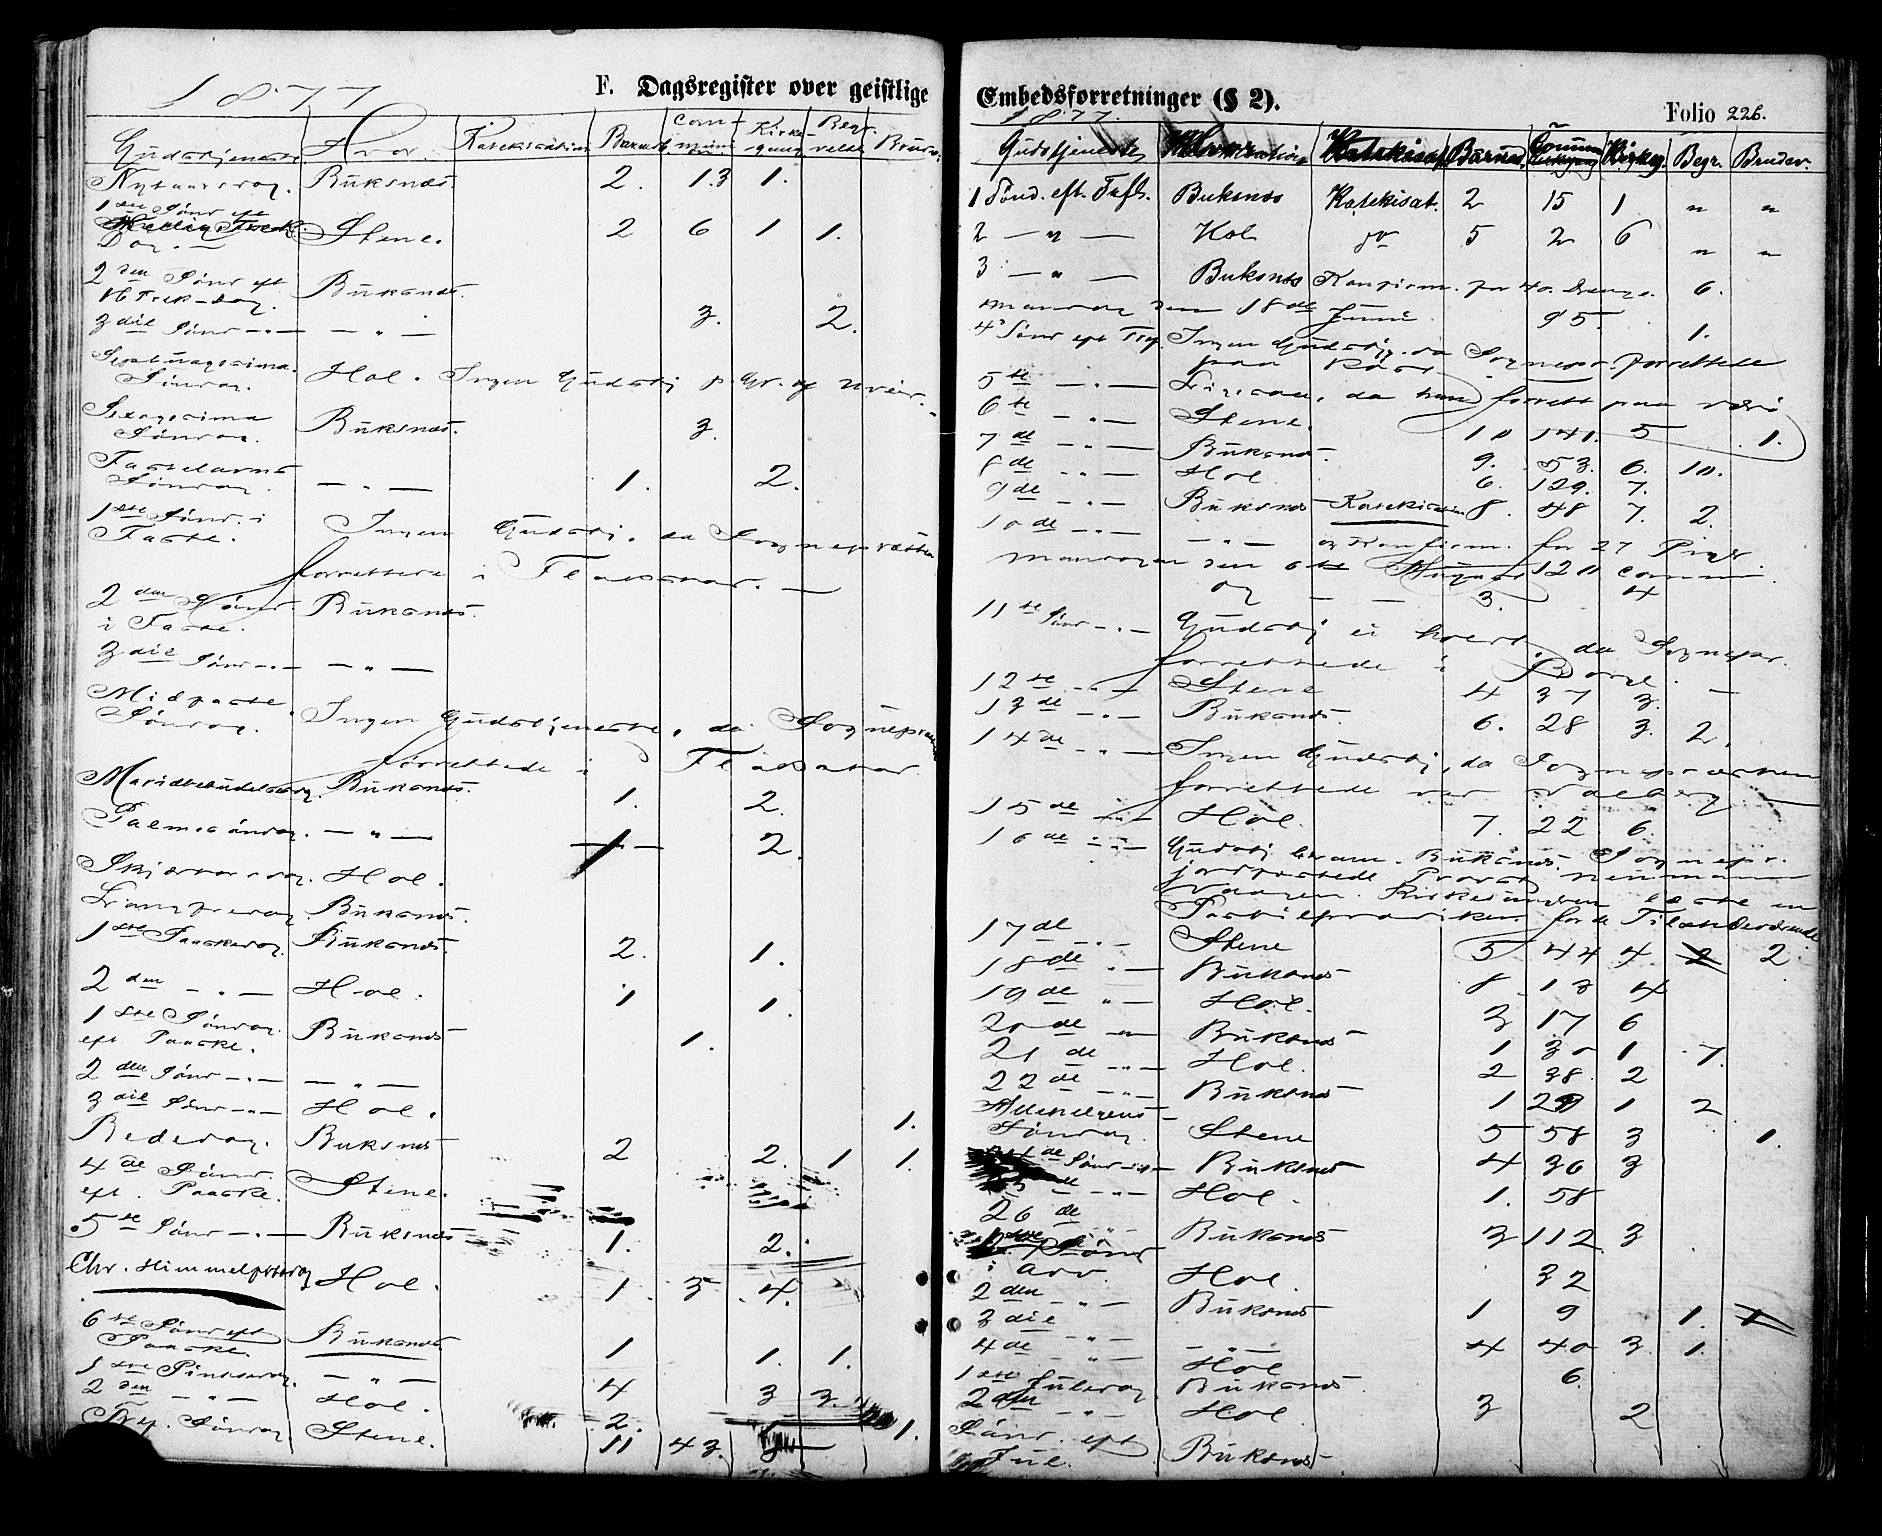 1877
F. Dagsregister over geistlige
Gudstjeneste Hvor. Katekisation Barned. Com-muni Kirke-gang Begr. Brudev.
Nytaarsdag. Buksnæs. 2. 13 1.
1ste Sønd eft
Dag. Stene. 2 6 1 1.
2den Sønd eft
H 3 Trek-dag. Buksnæs.
3die Sønd -"- — " — 3. 2.
Septuagesima
Søndag. Hol. Ingen Gudstj p. Gr. af Uveir.
Sexagesima
Søndag. Buksnæs. 3.
Fastelavns
Søndag. — " — 1. 2.
1ste Sønd. i
Faste. Ingen Gudstj. da Sognepræsten
forrettede i Flakstad. —
2den Sønd
i Faste. Buksnæs.
3die Sønd -"- — " —
Midfaste
Søndag. Ingen Gudstjeneste, da Sognepræst
forrettede i Flakstad.
Mariæbebudelsesdag. Buksnæs. 1. 2.
Palmesøndag. — " — 1 2.
Skjærtorsdag. Hol.
Langfredag Buksnæs.
1ste Paaskedag. Buksnæs 2. 1.
2den — " — Hol. 1 1.
1ste Søndag
eft. Paaske. Buksnæs 1.
2den Sønd -"- — " —
3die Sønd -"- Hol. 1.
Bededag. Buksnæs 2 2. 1 1.
4de Sønd.
eft. Paaske. Stene.
5te Sønd -"- Buksnæs 1. 2.
Chr. Himmelfartsdag Hol. 1 3 4.
6te Sønd eft
Paaske. Buksnæs 1 1. 1.
1ste Pinsedag. — " — 4 3 3.
2den — " — Hol. 2. 1.
Tref. Søndag Stene. 11 43.
Embedsforretninger (§ 2).
1877.
Folio 226.
Gudstjeneste Hvor Katekisat Barned. Comm Kirkeg Begr. Brudev.
1 Sønd. eft. Trefh. Buksnæs Katekisat. 2 15 1 " "
2 — " — Hol do 5 2 6 " "
3 — " — Buksnæs Konfirm. for 40 Drenge. 6.
Mandag den 18de Juni 95. 1.
4 Sønd eft Tref. Ingen Gudstj. da Sognepr. forrettede
paa Røst
5te — " — Ligesaa, da han forrett paa Værø
6te — " — Stene. 10 141. 5 1.
7de — " — Buksnæs. 9. 53. 6. 10.
8de — " — Hol 6. 129. 7.
9de — " — Buksnæs Katekisation 8. 48 7. 2.
10de — " — — " — og Konfirm. for 27 Piger.
Mandagen den 6te August 120 comm
og — — 3. 4
11te Sønd -"- Gudstj ei holdt, da Sognepr.
forrettede i Borge.
12te — " — Stene 4 37 3.
13de — " — Buksnæs. 6. 28 3. 2.
14de — " — Ingen Gudstj, da Sognepræsten
forrettede ved Valberg
15de — " — Hol. 7. 22 6.
16de — " — Gudstj beram. Buksnæs. Sognepr.
jordfæstede Provst
Vaagen. Kirkesangeren læste en
Postilprædiken for de Tilstedeværende
17de — " — Stene 5 44 4 2
18de — " — Buksnæs 8 13 4
19de — " — Hol. 3 17 6
20de — " — Buksnæs 1 30 1 7.
21de — " — Hol. 2 38 2
22de — " — Buksnæs 1 1 2
Allehelgens-
Søndag Stene 5 58 3 1.
24de Sønd -"- Buksnæs 4 36 3
de — " — Hol. 1. 58
26de — " — Buksnæs 3 112 3
1ste Sønd
i Adv. Hol. 32
2den — " — Buksnæs 1 9 1. 1
3die — " — — " — 4 40 3. 1.
4de — " — Hol 6.
1ste Juledag Buksnæs.
2den — " — Hol 3 2
Sønd. eft
Jul. Buksnæs